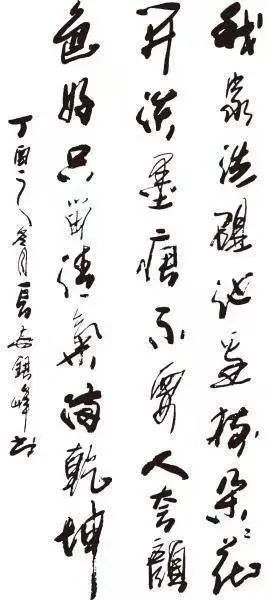 我家洗硯池边树朵々花
开淡墨痕不要人夸顏
色好只留清氣满乾坤
丁酉之冬月長安峰书